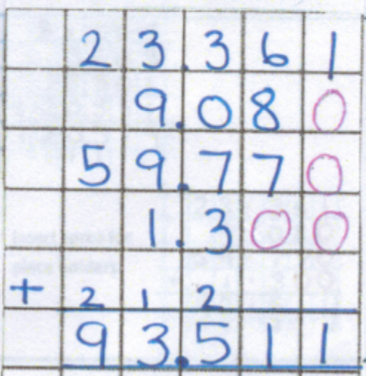 23.361
9.080
59.770
1.300
+ 2 1 2
93.511